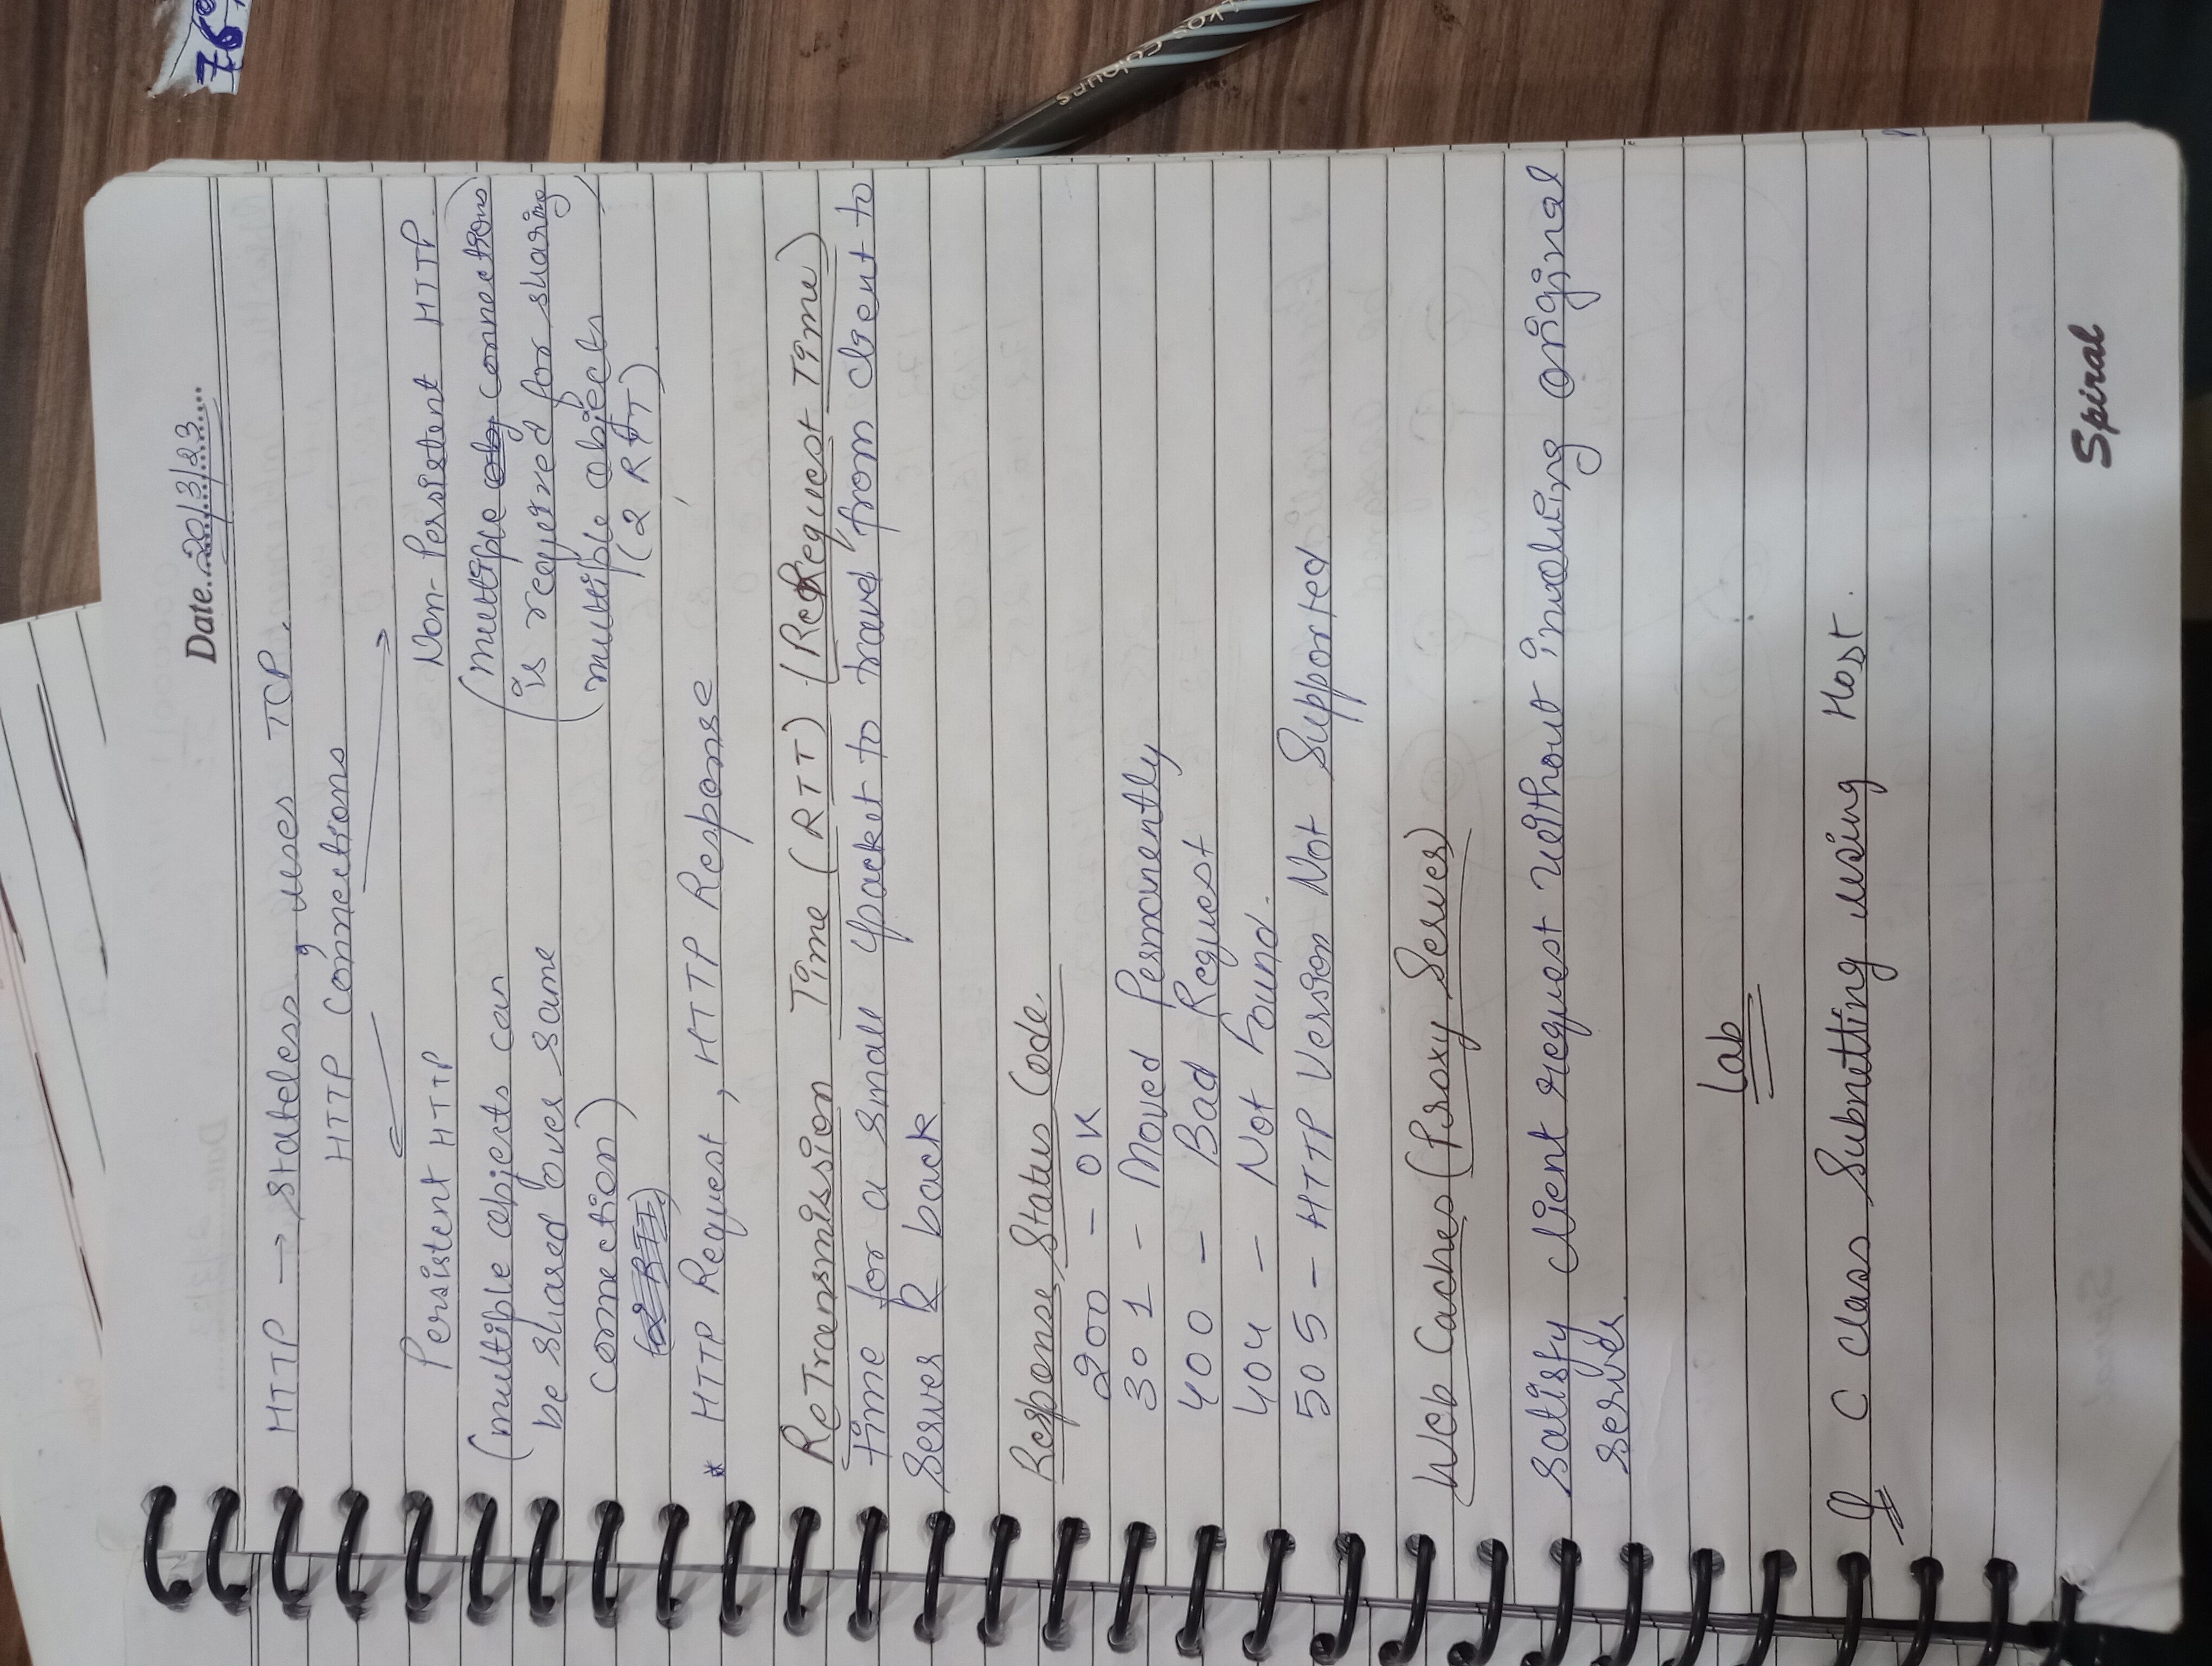 Date..20/3/23....
HTTP → Stateless, uses TCP.
HTTP Connections
Persistent HTTP Non-Persistent HTTP
(multiple objects can (multiple connections)
be shared over same (is required for sharing
connection) multiple objects)
(2 RTT) (2 RTT)
* HTTP Request, HTTP Response
ReTransmission Time (RTT) (ReRequest Time)
time for a small packet to travel from client to
server & back
Response Status Code
200 - OK
301 - Moved Permanently
400 - Bad Request
404 - Not Found.
505 - HTTP Version Not Supported
Web Caches (Proxy Server)
Satisfy client request without involving original
server
Lab
C Class Subnetting using Host.
Spiral
COLOURS